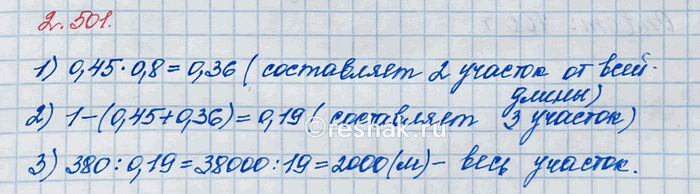 2.501.
1) 0,45·0,8=0,36 (составляет 2 участок от всей
длины)
2) 1-(0,45+0,36)=0,19 (составляет 3 участок)
3) 380:0,19=38000:19=2000(м)- весь участок.
©reshak.ru